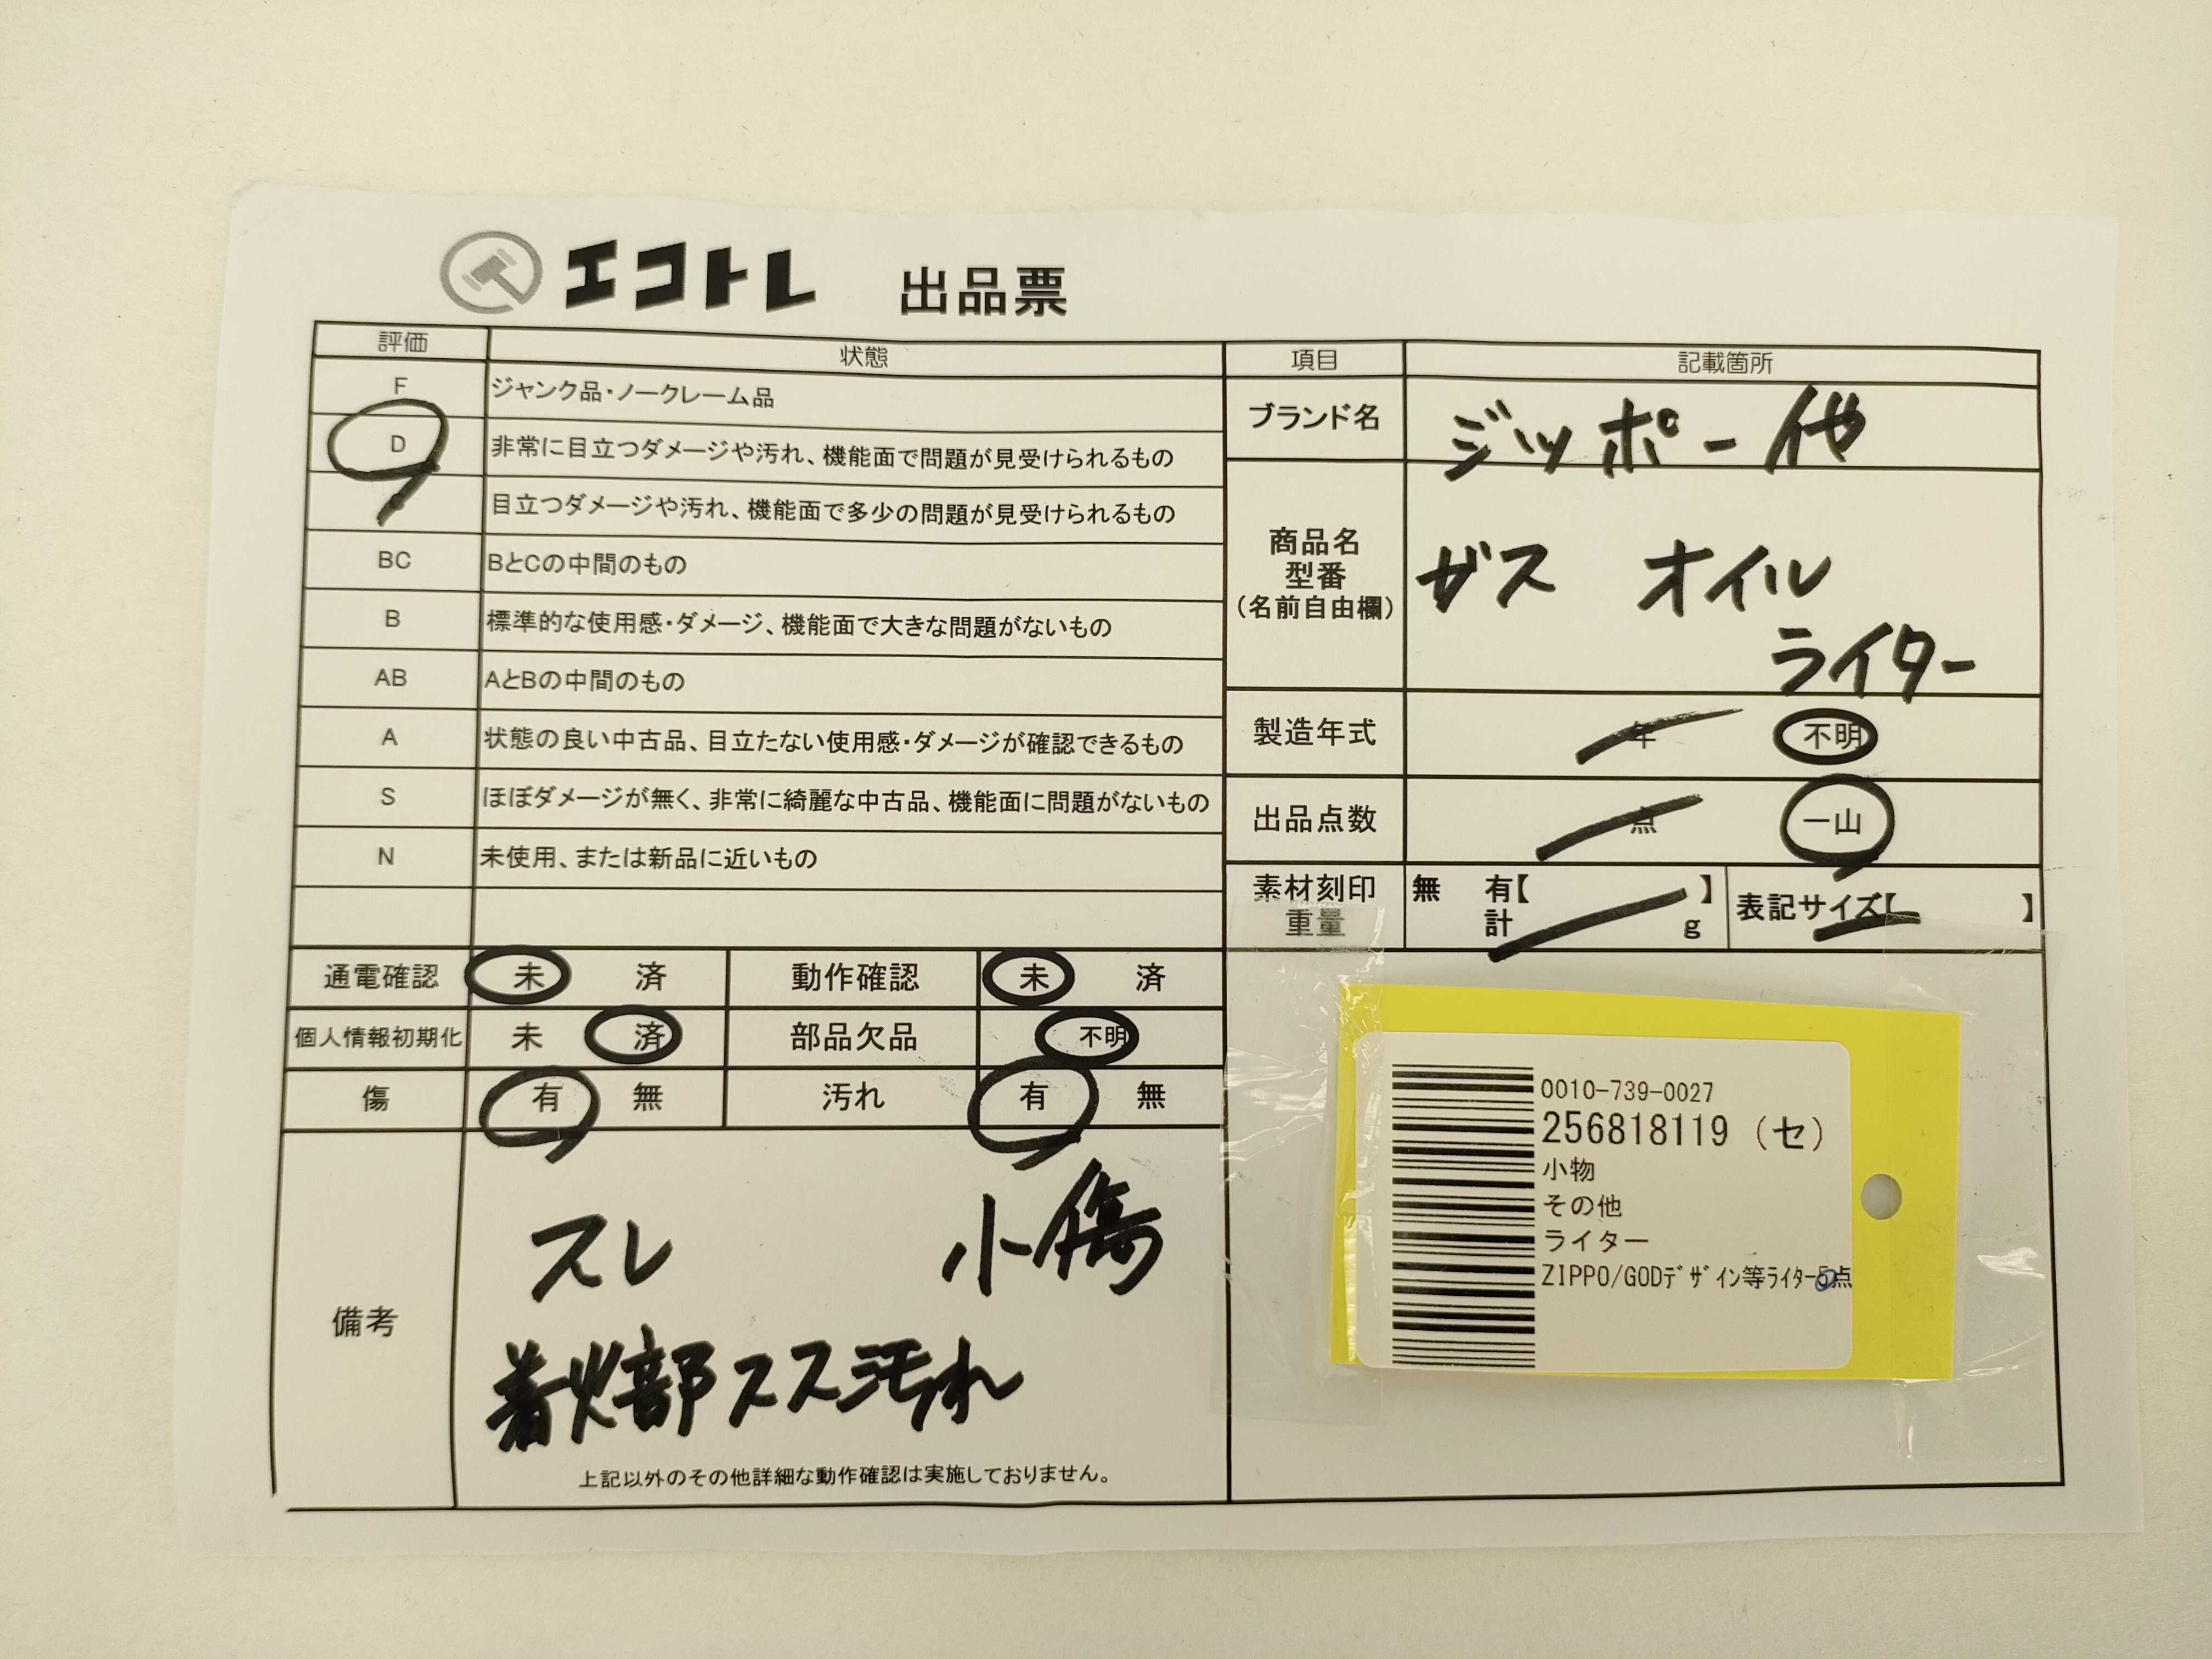 エコトレ 出品票
評価 状態
F ジャンク品・ノークレーム品
D 非常に目立つダメージや汚れ、機能面で問題が見受けられるもの
目立つダメージや汚れ、機能面で多少の問題が見受けられるもの
BC BとCの中間のもの
B 標準的な使用感・ダメージ、機能面で大きな問題がないもの
AB AとBの中間のもの
A 状態の良い中古品、目立たない使用感・ダメージが確認できるもの
S ほぼダメージが無く、非常に綺麗な中古品、機能面に問題がないもの
N 未使用、または新品に近いもの
通電確認 未 済 動作確認 未 済
個人情報初期化 未 済 部品欠品 不明
傷 有 無 汚れ 有 無
備考
スレ 小傷
着火部スス汚れ
上記以外のその他詳細な動作確認は実施しておりません。
項目 記載箇所
ブランド名 ジッポー他
商品名
型番
(名前自由欄)
ガス オイル
ライター
製造年式 年 不明
出品点数 点 一山
素材刻印 無 有【 】 表記サイズ【 】
重量 計 g
0010-739-0027
256818119 (セ)
小物
その他
ライター
ZIPPO/GODﾃﾞｻﾞｲﾝ等ﾗｲﾀｰ5点